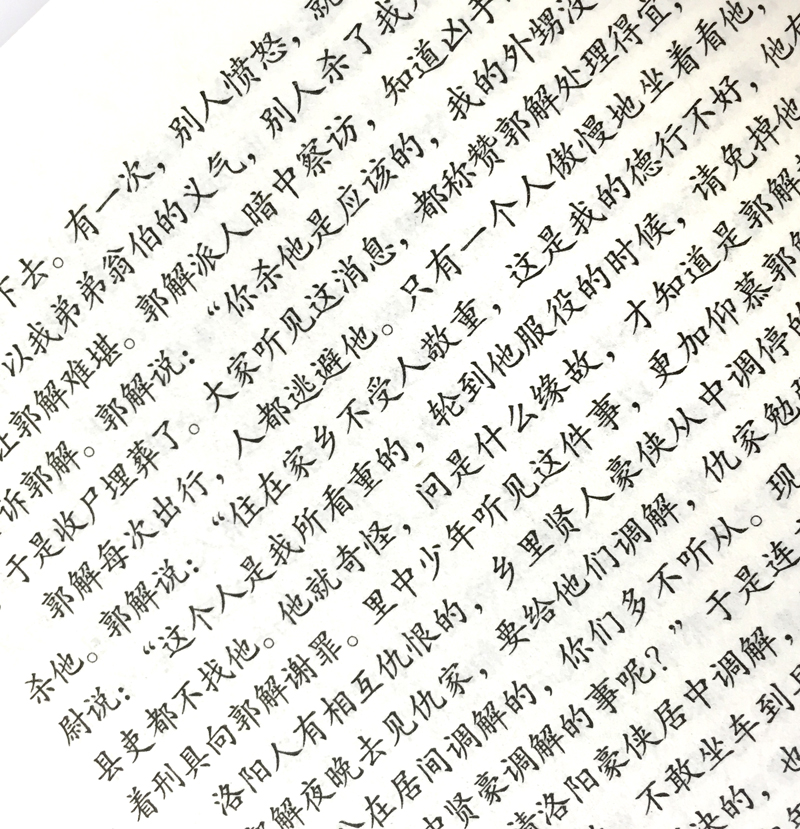 下去。有一次，别人愤怒，就
以我弟弟翁伯的义气，别人杀了我
让郭解难堪。郭解派人暗中察访，知道凶手
诉郭解。郭解说：“你杀他是应该的，我的外甥没
于是收尸埋葬了。大家听见这消息，都称赞郭解处理得宜，
郭解每次出行，人都逃避他。只有一个人傲慢地坐着看他，
杀他。郭解说：“住在家乡不受人敬重，这是我的德行不好，他有
尉说：“这个人是我所看重的，轮到他服役的时候，请免掉他
县吏都不找他。他就奇怪，问是什么缘故，才知道是郭解
着刑具向郭解谢罪。里中少年听见这件事，更加仰慕郭解
洛阳人有相互仇恨的，乡里贤人豪侠从中调停的
郭解夜晚去见仇家，要给他们调解，仇家勉
在居间调解的，你们多不听从。现
中贤豪调解的事呢？”于是连
请洛阳豪侠居中调解，
不敢坐车到
决的，也